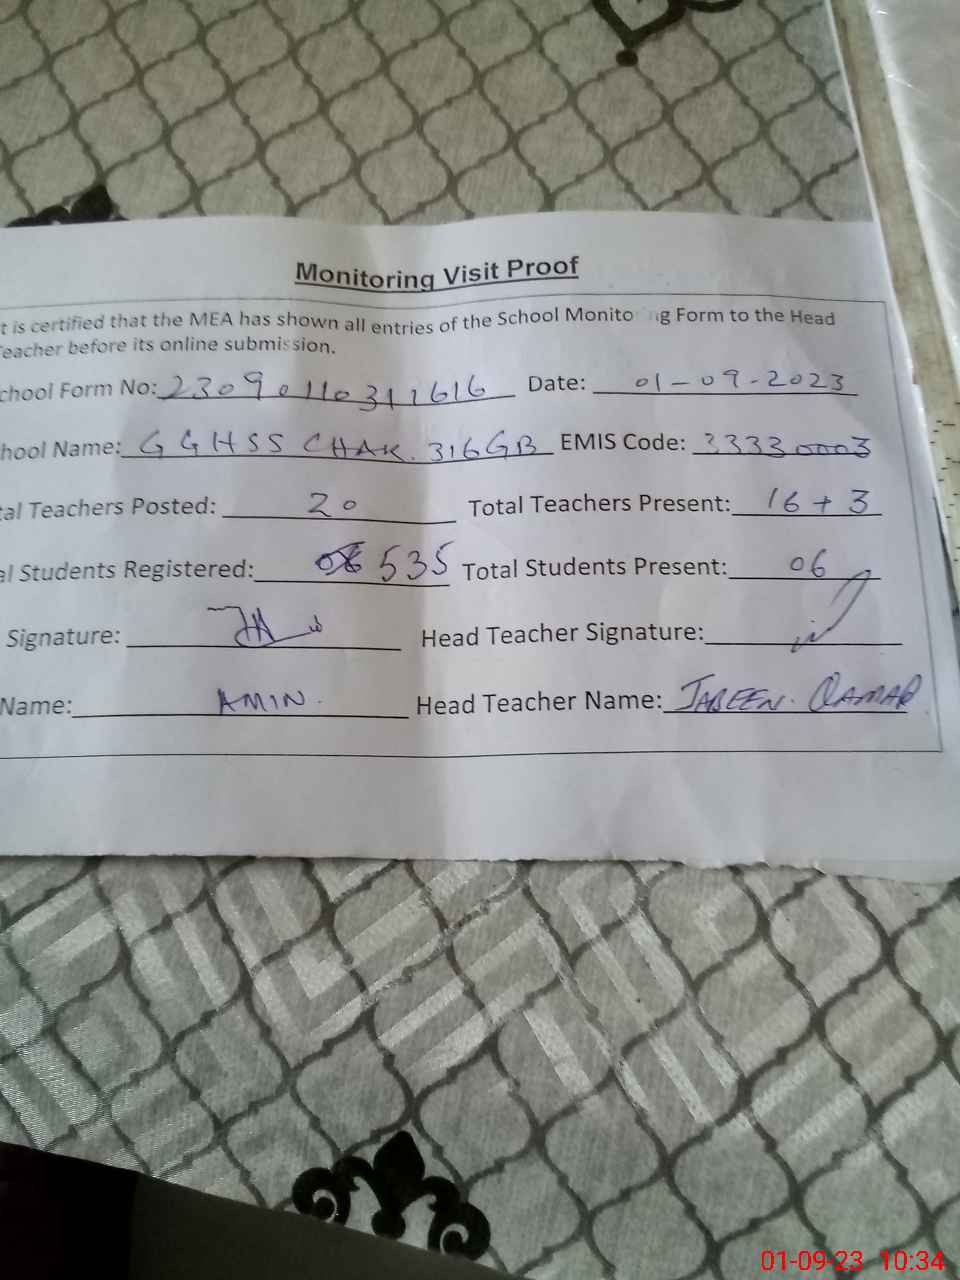 Monitoring Visit Proof
t is certified that the MEA has shown all entries of the School Monito ng Form to the Head
eacher before its online submission.
chool Form No: 2309011031 1616 Date: 01-09-2023
hool Name: GGHSS CHAK. 316GB EMIS Code: 33330003
tal Teachers Posted: 20 Total Teachers Present: 16 + 3
al Students Registered: 535 Total Students Present: 06
Signature: Head Teacher Signature:
Name: AMIN. Head Teacher Name: JABEEN. QAMAR
01-09-23 10:34